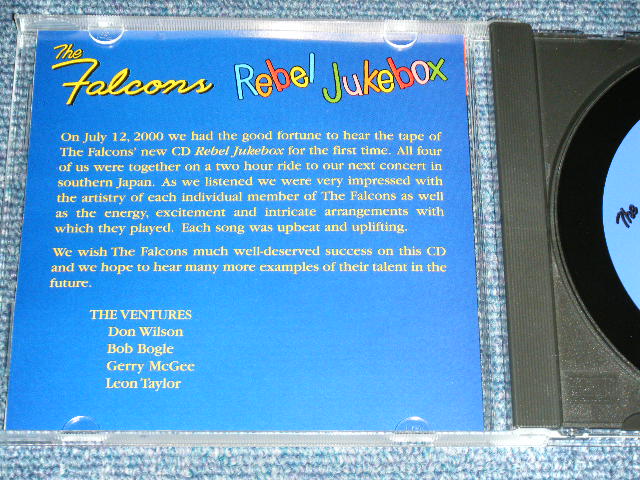 The
Falcons Rebel Jukebox
On July 12, 2000 we had the good fortune to hear the tape of
The Falcons' new CD Rebel Jukebox for the first time. All four
of us were together on a two hour ride to our next concert in
southern Japan. As we listened we were very impressed with
the artistry of each individual member of The Falcons as well
as the energy, excitement and intricate arrangements with
which they played. Each song was upbeat and uplifting.
We wish The Falcons much well-deserved success on this CD
and we hope to hear many more examples of their talent in the
future.
THE VENTURES
Don Wilson
Bob Bogle
Gerry McGee
Leon Taylor
The